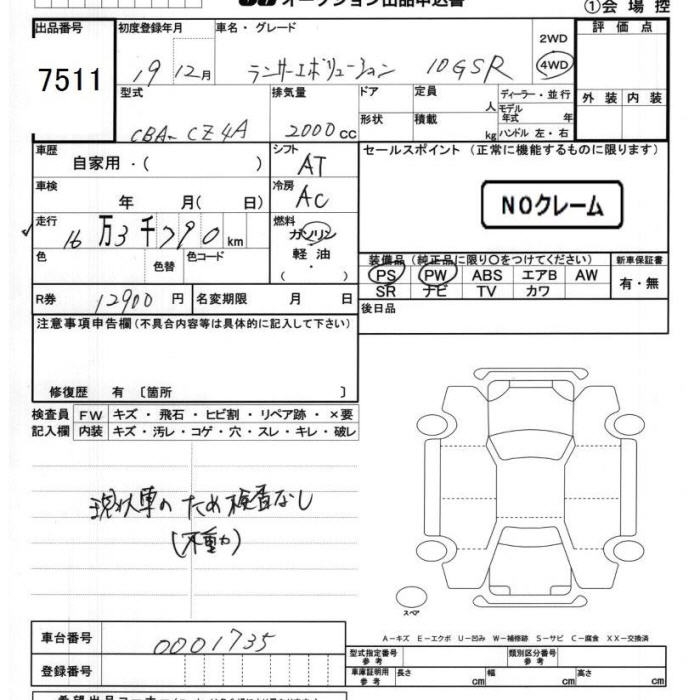 オークション出品申込書 ①会場控
出品番号 初度登録年月 車名・グレード 2WD 評価点
7511 19 12月 ランサーエボリューション 10GSR 4WD
型式 排気量 ドア 定員 人 ディーラー・並行 外装 内装
モデル年式 年
CBA-CZ4A 2000cc 形状 積載 kg ハンドル 左・右
車歴 自家用・( ) シフト AT セールスポイント (正常に機能するものに限ります)
車検 年 月( 日) 冷房 AC NOクレーム
走行 16万3千790km 燃料 ガソリン
軽油
( ・ )
色 色替 色コード 装備品 (純正品に限り○をつけてください) 新車保証書
PS PW ABS エアB AW 有・無
R券 12900円 名変期限 月 日 SR ナビ TV カワ
後日品
注意事項申告欄(不具合内容等は具体的に記入して下さい)
修復歴 有 〔箇所 〕
検査員 FW キズ・飛石・ヒビ割・リペア跡・×要
記入欄 内装 キズ・汚レ・コゲ・穴・スレ・キレ・破レ
現状車のため検査なし
(不動力)
スペア
A-キズ E-エクボ U-凹み W-補修跡 S-サビ C-腐食 XX-交換済
車台番号 0001735 型式指定番号 参考 類別区分番号 参考
登録番号 車庫証明用 参考 長さ cm 幅 cm 高さ cm
希望出品コーナー